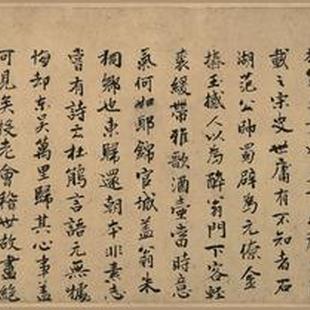 載之宋史世庸有不知者石
湖范公帥蜀辟為元僚金
摏玉撼人以為醉翁門下客輕
裘緩帶雅歌酒壺當時意
氣何如耶錦官城蓋翁朱
桐鄉也東歸還朝本非素志
嘗有詩云杜鵑言語元無據
悔却東吳萬里歸其心事蓋
可見矣投老會稽世故盡絕